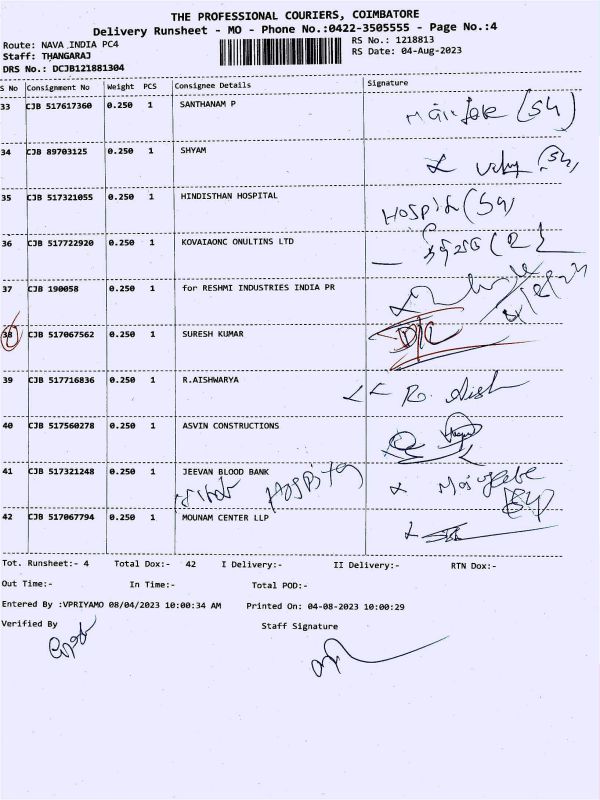 THE PROFESSIONAL COURIERS, COIMBATORE
Delivery Runsheet - MO - Phone No.:0422-3505555 - Page No.:4
Route: NAVA INDIA PC4
RS No.: 1218813
Staff: THANGARAJ
RS Date: 04-Aug-2023
DRS No.: DCJB121881304
S No Consignment No Weight PCS Consignee Details Signature
33 CJB 517617360 0.250 1 SANTHANAM P
34 CJB 89703125 0.250 1 SHYAM
35 CJB 517321055 0.250 1 HINDISTHAN HOSPITAL
36 CJB 517722920 0.250 1 KOVAIAONC ONULTINS LTD
37 CJB 190058 0.250 1 for RESHMI INDUSTRIES INDIA PR
38 CJB 517067562 0.250 1 SURESH KUMAR D/C
39 CJB 517716836 0.250 1 R.AISHWARYA R. Aish
40 CJB 517560278 0.250 1 ASVIN CONSTRUCTIONS
41 CJB 517321248 0.250 1 JEEVAN BLOOD BANK
Hospital
42 CJB 517067794 0.250 1 MOUNAM CENTER LLP
Tot. Runsheet:- 4 Total Dox:- 42 I Delivery:- II Delivery:- RTN Dox:-
Out Time:- In Time:- Total POD:-
Entered By :VPRIYAMO 08/04/2023 10:00:34 AM Printed On: 04-08-2023 10:00:29
Verified By Staff Signature